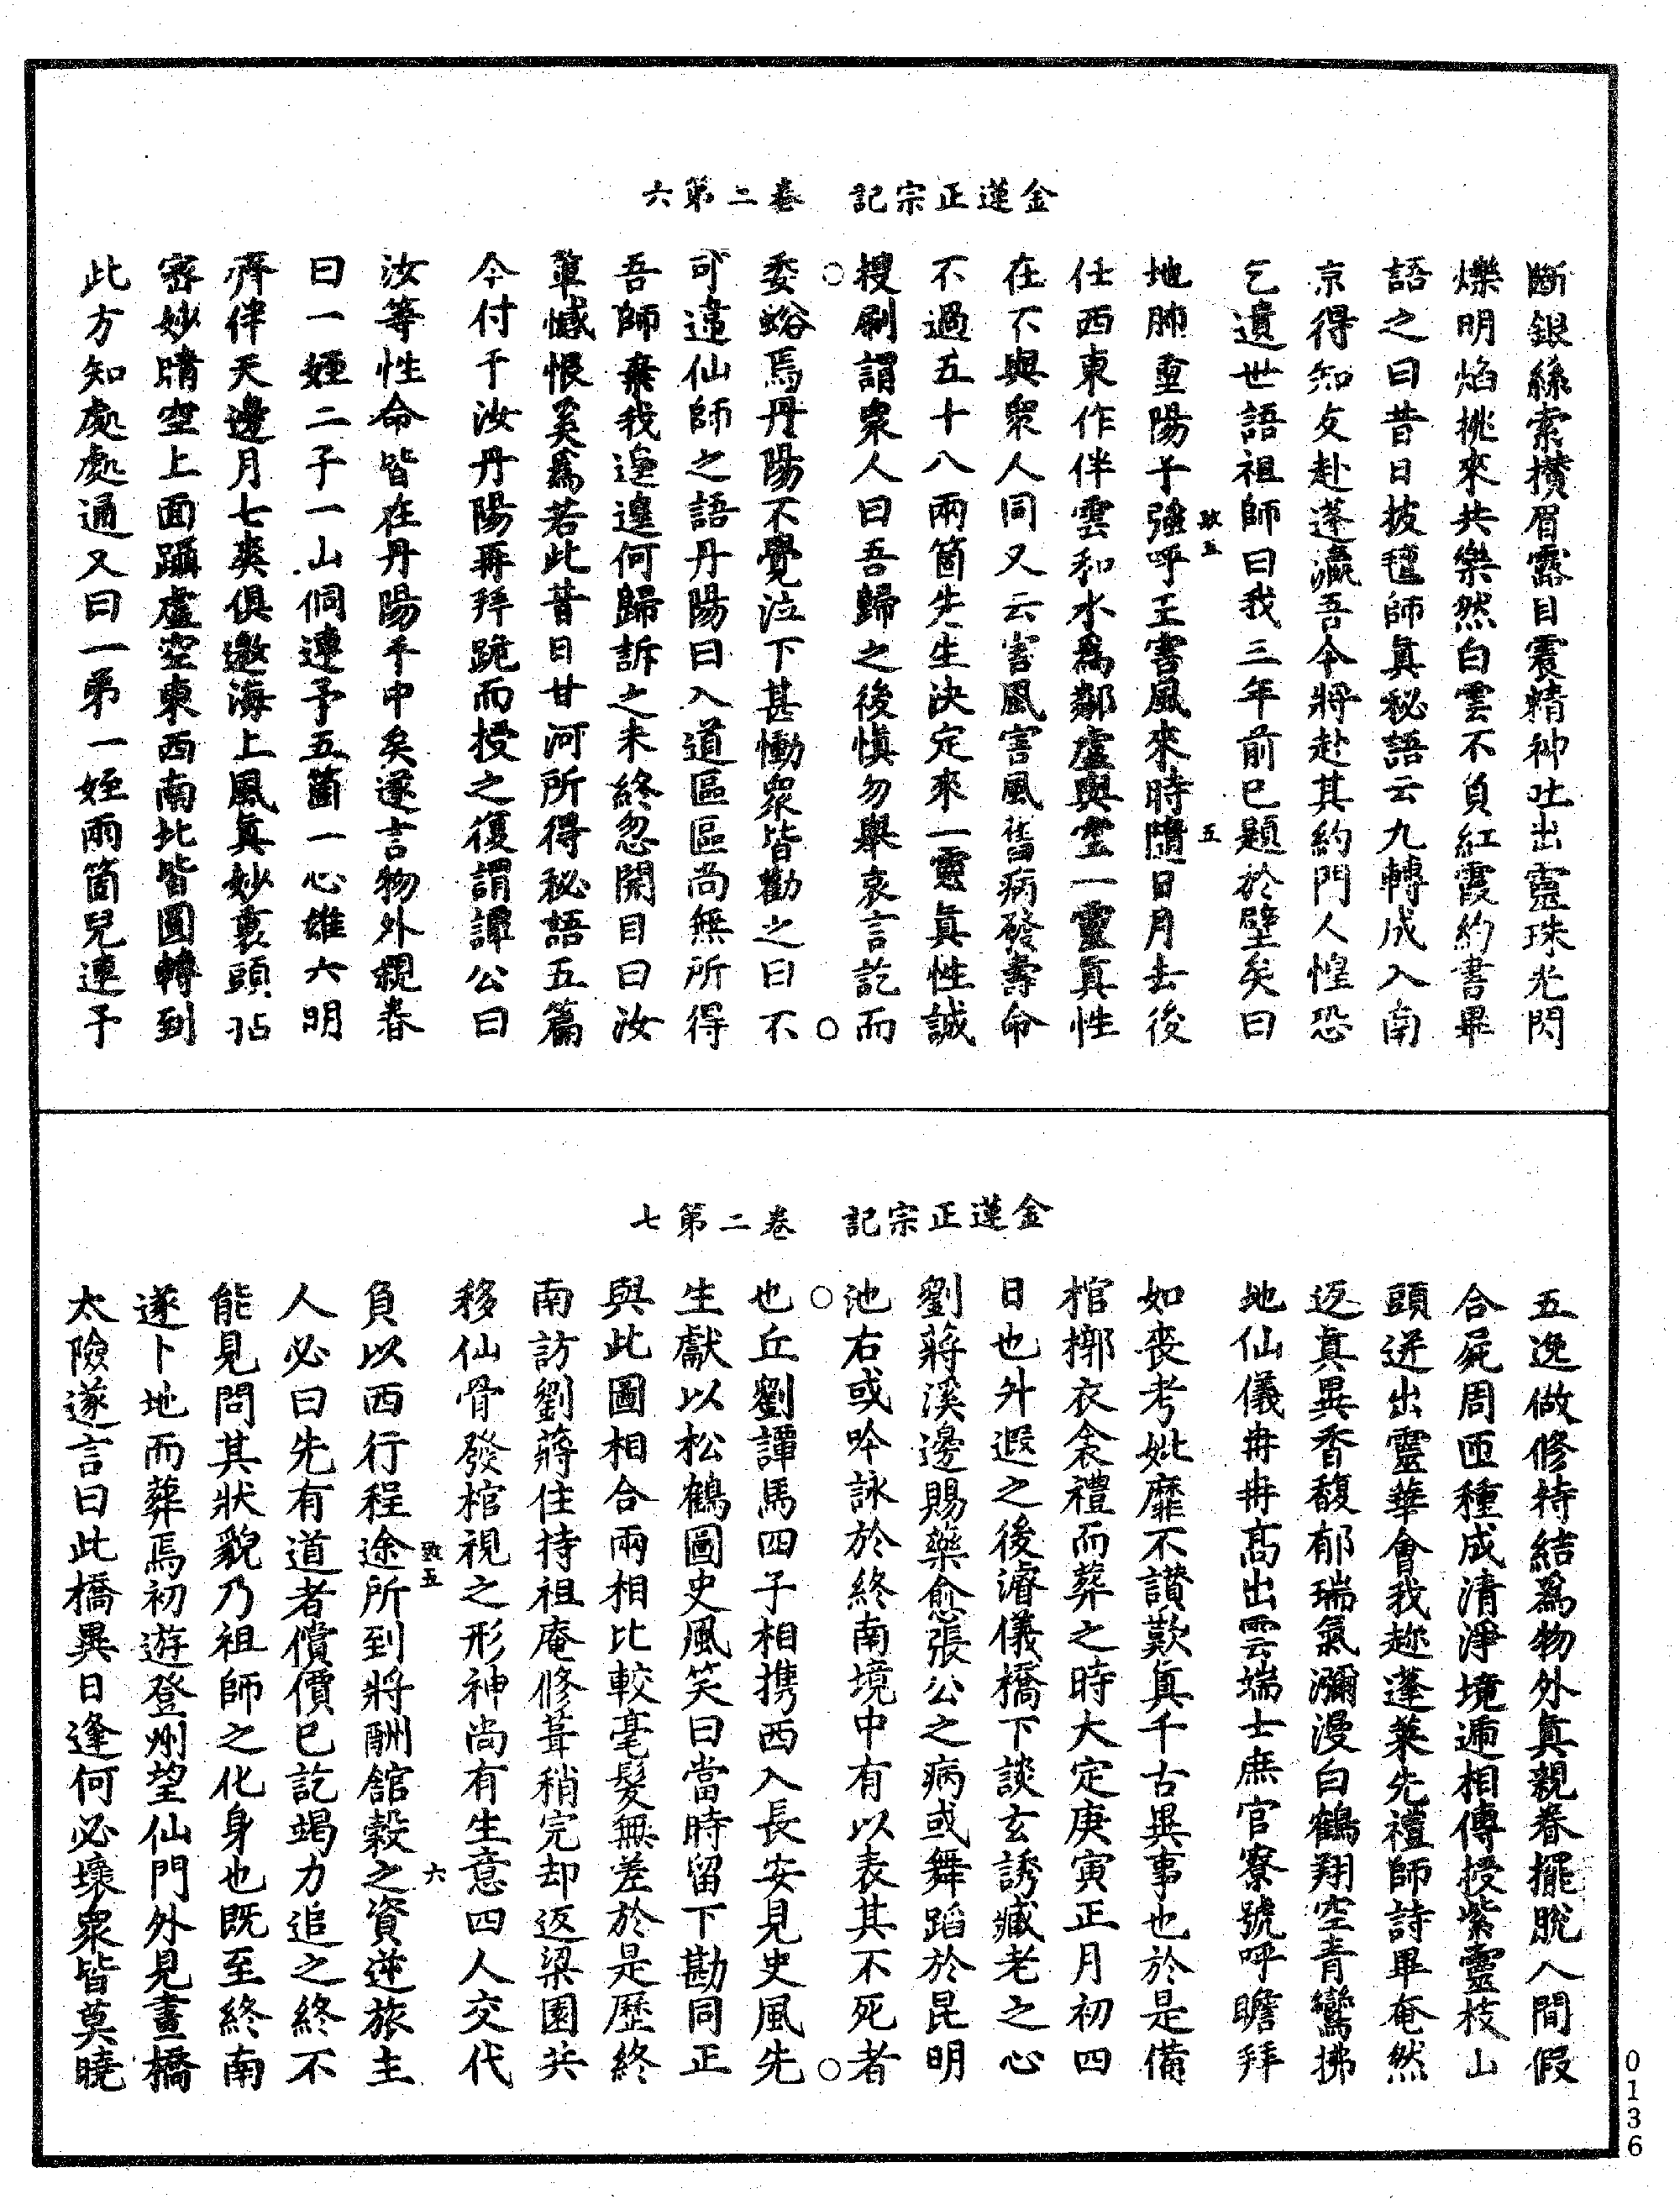 金蓮正宗記　卷二第六
斷銀絲索攅眉露目震精神吐出靈珠光閃
爍明焰挑來共樂然白雲不負紅霞約書畢
語之曰昔日披氊師真秘語云九轉成入南
京得知友赴蓬瀛吾今將赴其約門人惶恐
乞遺世語祖師曰我三年前已題於壁矣曰
致五　五
地肺重陽子強呼王害風來時隨日月去後
任西東作伴雲和水為鄰虛與空一靈真性
在不與衆人同又云害風害風舊病發壽命
不過五十八兩箇先生決定來一靈真性誠
搜刷謂衆人曰吾歸之後慎勿舉哀言訖而
○　○
委蛻焉丹陽不覺泣下甚慟衆皆勸之曰不
可違仙師之語丹陽曰入道區區尚無所得
吾師棄我遑遑何歸訴之未終忽開目曰汝
等憾恨奚為若此昔日甘河所得秘語五篇
今付于汝丹陽再拜跪而授之復謂譚公曰
汝等性命皆在丹陽手中矣遂言物外親眷
曰一姪二子一山侗連予五箇一心雄六明
齊伴天邊月七爽俱邀海上風真妙裏頭拈
密妙晴空上面躡虛空東西南北皆圓轉到
此方知處處通又曰一弟一姪兩箇兒連予
金蓮正宗記　卷二第七
五逸做修持結為物外真親眷擺脫人間假
合屍周匝種成清淨境遞相傳授紫靈枝山
頭迸出靈華會我趂蓬萊先禮師詩畢奄然
返真異香馥郁瑞氣瀰漫白鶴翔空青鸞拂
地仙儀冉冉高出雲端士庶官寮號呼瞻拜
如丧考妣靡不讃歎真千古異事也於是備
棺槨衣衾禮而葬之時大定庚寅正月初四
日也升遐之後濬儀橋下談玄誘臧老之心
劉蔣溪邊賜藥愈張公之病或舞蹈於昆明
池右或吟詠於終南境中有以表其不死者
○　○
也丘劉譚馬四子相携西入長安見史風先
生獻以松鶴圖史風笑曰當時留下勘同正
與此圖相合兩相比較毫髮無差於是歷終
南訪劉蔣住持祖庵修葺稍完却返梁園共
移仙骨發棺視之形神尚有生意四人交代
致五　六
負以西行程途所到將酬舘穀之資逆旅主
人必曰先有道者償價已訖竭力追之終不
能見問其狀貌乃祖師之化身也既至終南
遂卜地而葬焉初遊登州望仙門外見畫橋
太險遂言曰此橋異日逢何必壞衆皆莫曉
0136